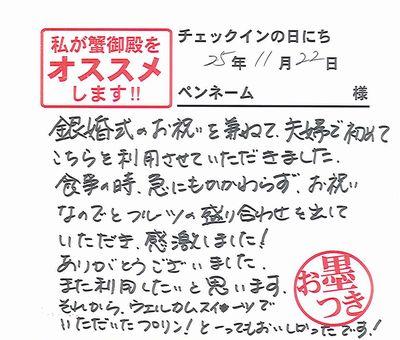 私が蟹御殿を
オススメ
します!!
チェックインの日にち
25年 11月 22日
ペンネーム 様
銀婚式のお祝いを兼ねて、夫婦で初めて
こちらを利用させていただきました。
食事の時、急にもかかわらず、お祝い
なのでとフルーツの盛り合わせを出して
いただき、感激しました!
ありがとうございました。
また利用したいと思います。
それから、ウェルカムスイーツで
いただいたプリン! とーってもおいしかったです!
お墨つき